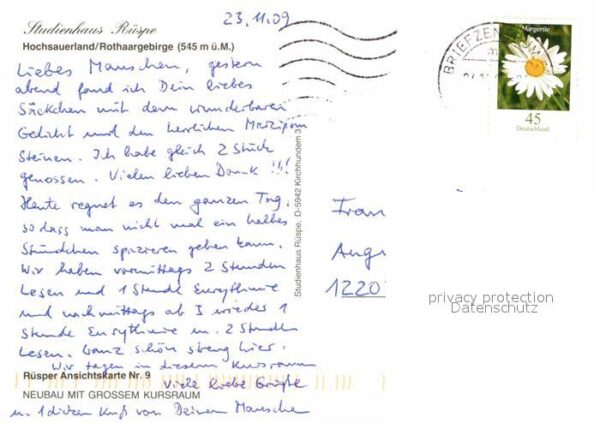 23.11.09
Studienhaus Rüspe
Hochsauerland/Rothaargebirge (545 m ü.M.)
Liebes Mauschen, gestern
abend fand ich Dein liebes
Säckchen mit dem wunderbaren
Gedicht und den herrlichen Marzipan
Steinen. Ich habe gleich 2 Stück
genossen. Vielen lieben Dank !!!
Heute regnet es den ganzen Tag,
so dass man nicht mal ein halbes
Stündchen spazieren gehen kann.
Wir haben vormittags 2 Stunden
Lesen und 1 Stunde Eurythmie
und nachmittags ab 3 wieder 1
Stunde Eurythmie u. 2 Stunden
Lesen. Ganz schön streng hier.
Wir tagen in diesem Kursraum
Rüsper Ansichtskarte Nr. 9
Viele liebe Grüße
NEUBAU MIT GROSSEM KURSRAUM
u. 1 dicken Kuß von Deinem
Studienhaus Rüspe, D-5942 Kirchhundem 3
BRIEFZENTRUM
Margerite
45
Deutschland
Fran
Augs
1220
privacy protection
Datenschutz